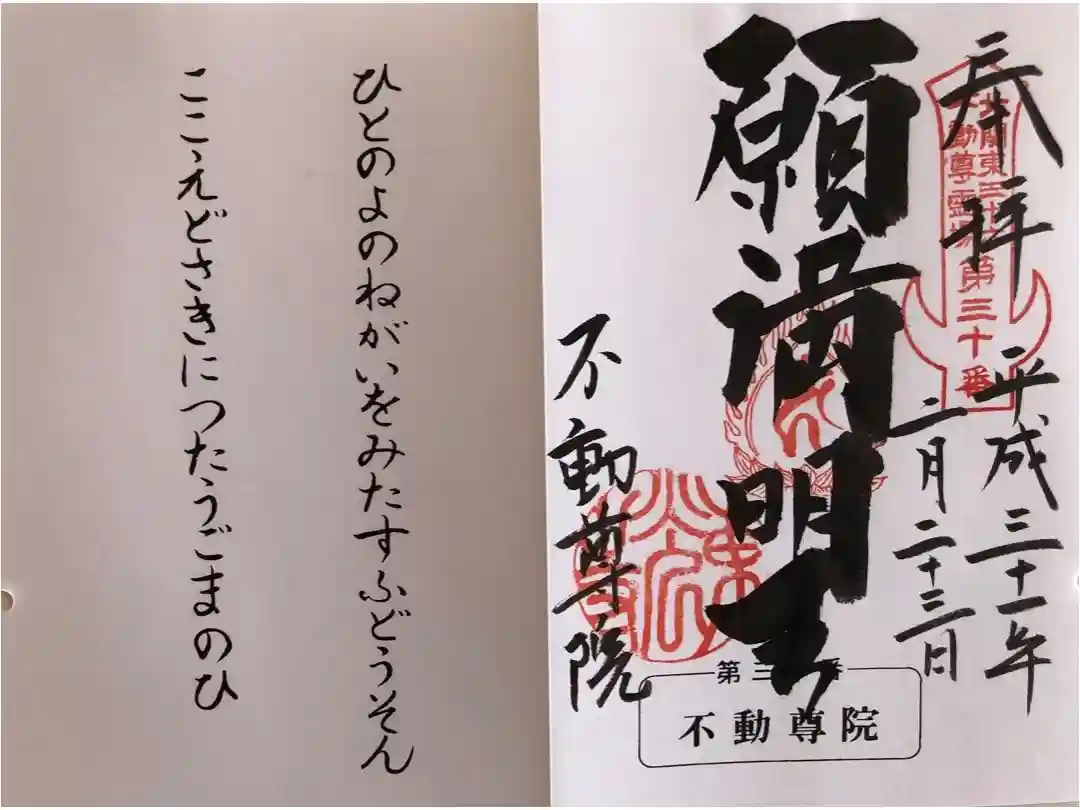 奉拝
北関東三十六
不動尊霊場第三十番
平成三十一年
二月二十三日
願満明王
不動尊院
第三十番
不動尊院
ひとのよのねがいをみたすふどうそん
ここえどさきにつたうごまのひ